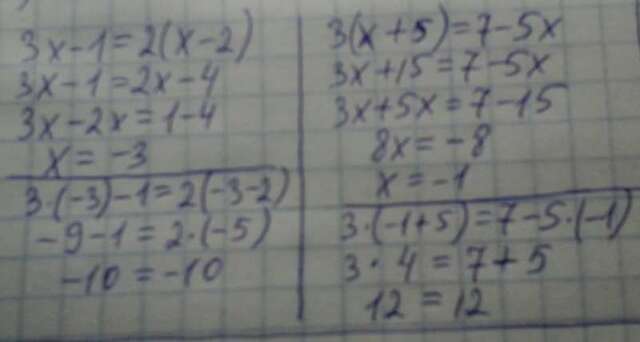 3x-1=2(x-2)
3x-1=2x-4
3x-2x=1-4
x=-3
3·(-3)-1=2(-3-2)
-9-1=2·(-5)
-10=-10
3(x+5)=7-5x
3x+15=7-5x
3x+5x=7-15
8x=-8
x=-1
3·(-1+5)=7-5·(-1)
3·4=7+5
12=12